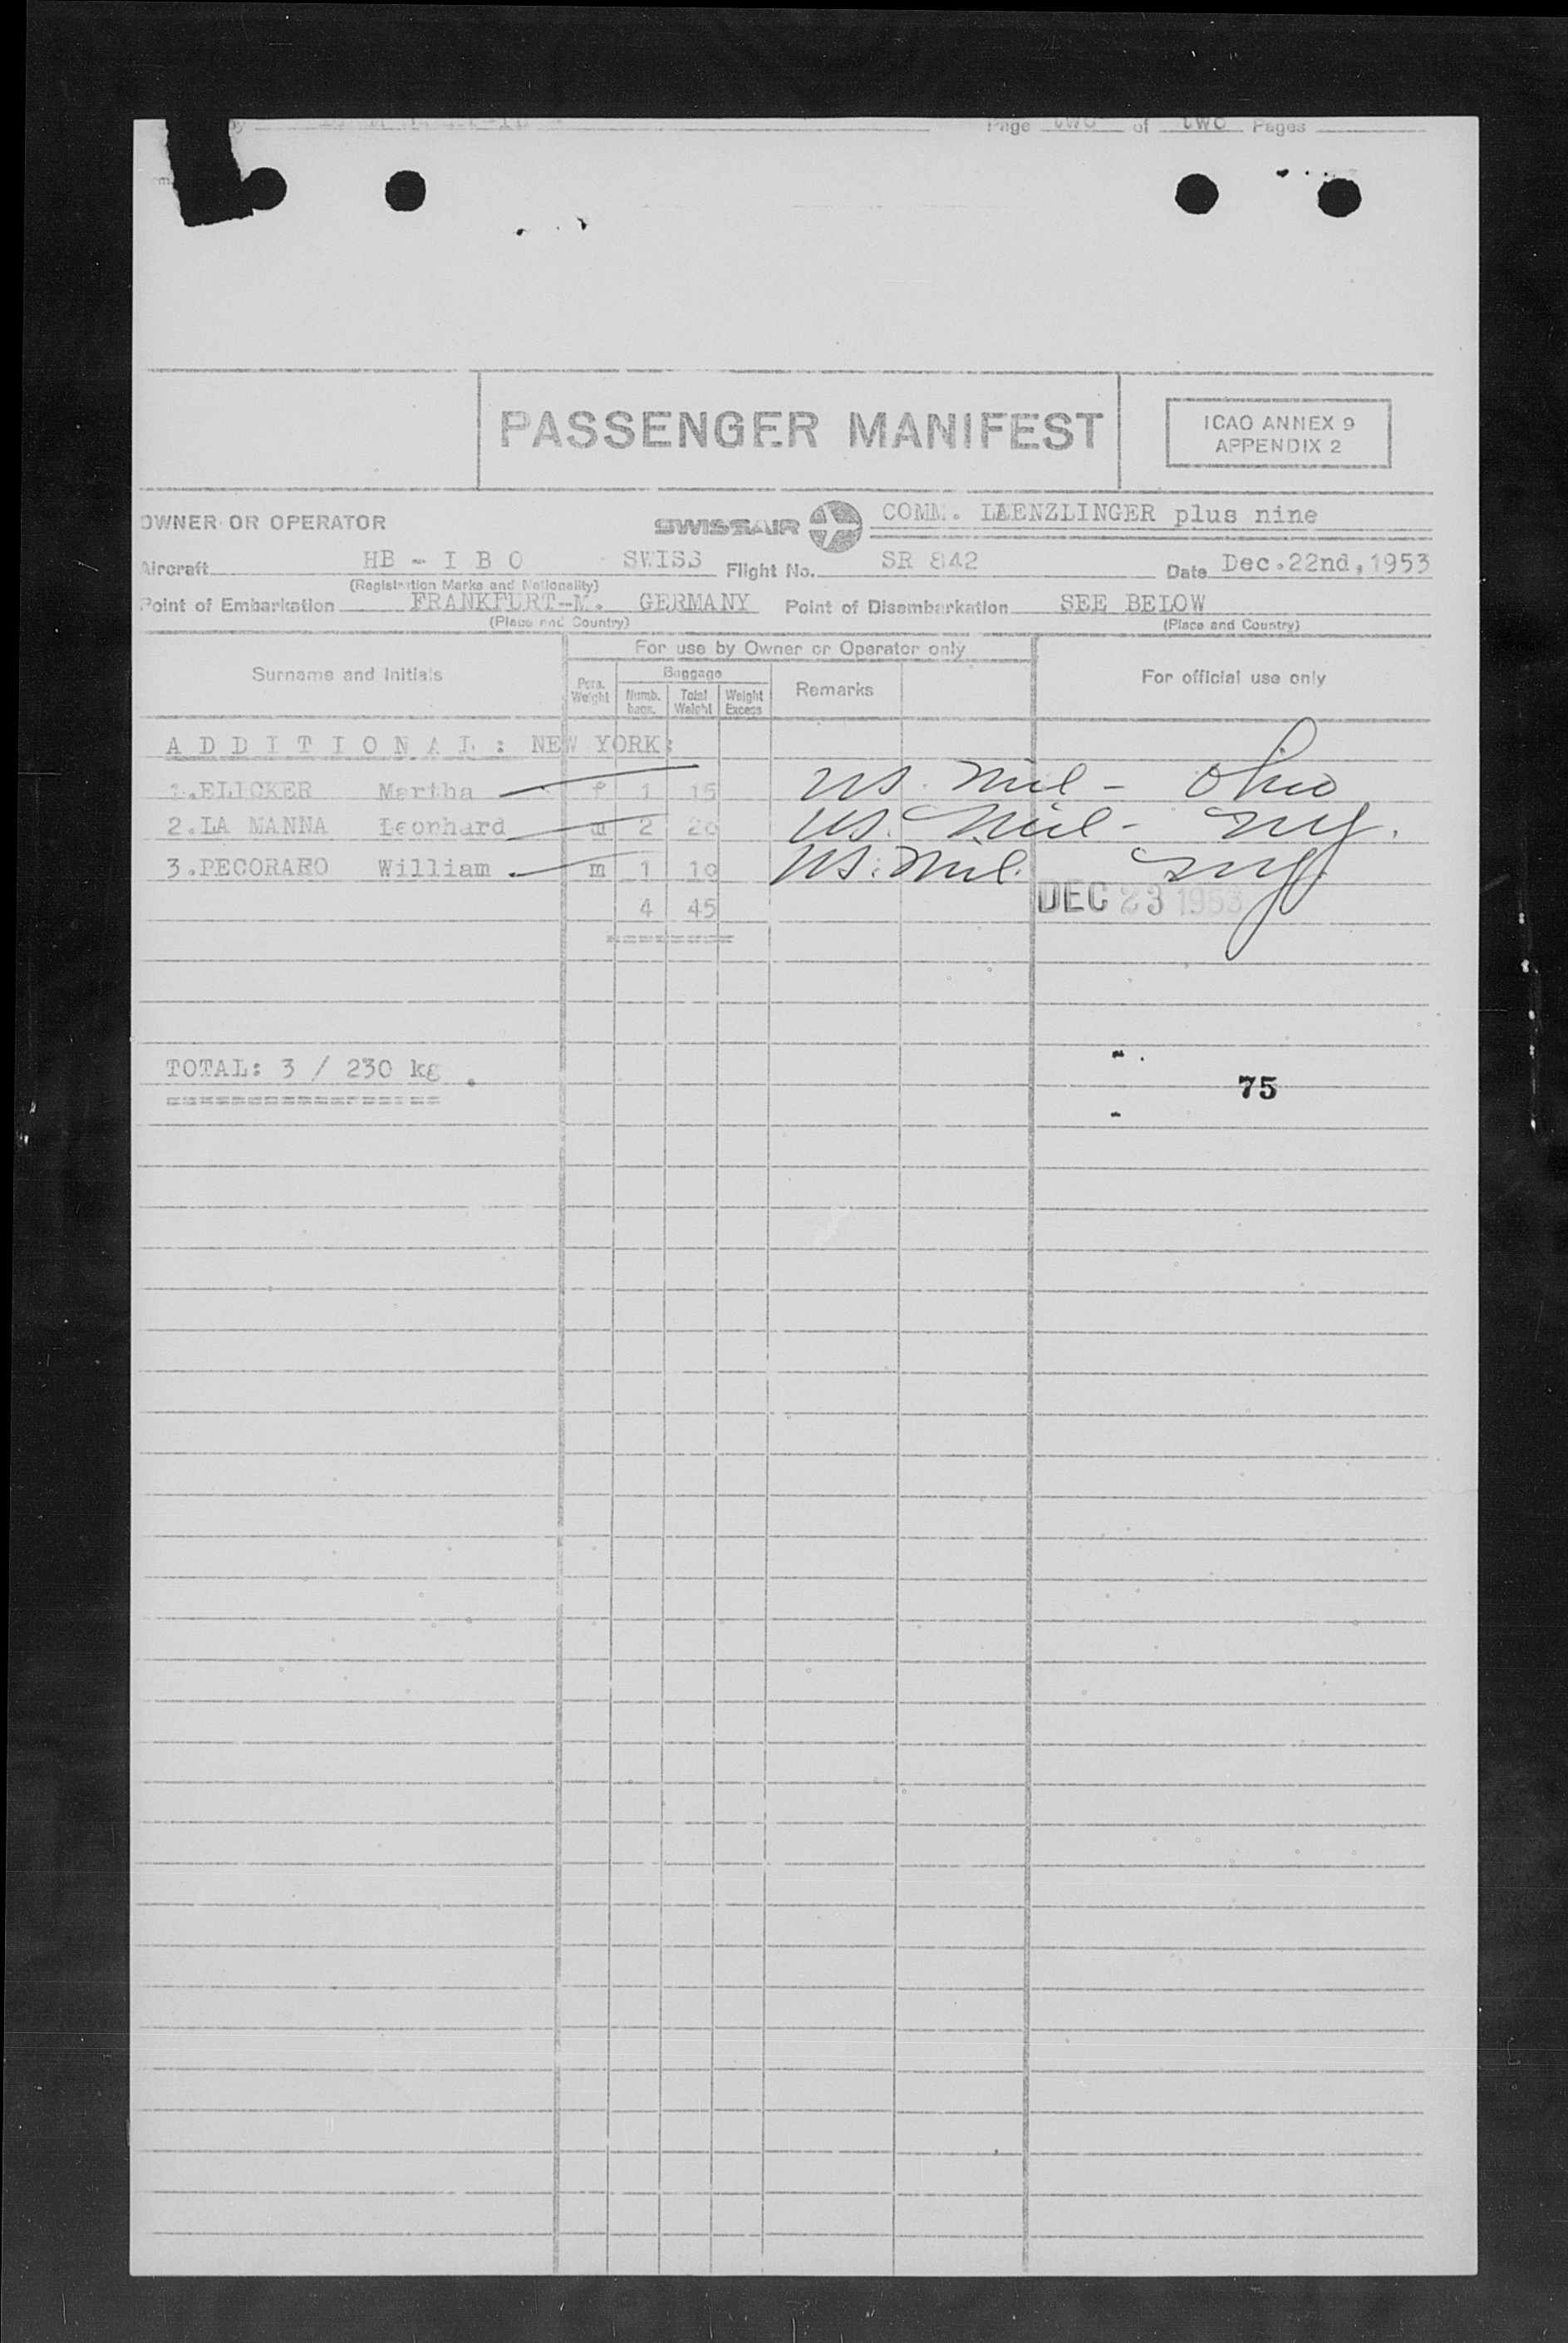 by
Page two of two Pages
PASSENGER MANIFEST
ICAO ANNEX 9
APPENDIX 2
OWNER OR OPERATOR SWISSAIR COMM. LAENZLINGER plus nine
Aircraft HB - I B O SWISS Flight No. SR 842 Date Dec.22nd,1953
(Registration Marks and Nationality)
Point of Embarkation FRANKFURT-M. GERMANY Point of Disembarkation SEE BELOW
(Place and Country) (Place and Country)
For use by Owner or Operator only
Surname and Initials Pers. Weight Baggage Numb. bags. Total Weight Weight Excess Remarks For official use only
A D D I T I O N A L : NEW YORK:
1.ELICKER Martha f 1 15 US. Mil - Ohio
2.LA MANNA Leonhard m 2 20 US. Mil - NY.
3.PECORARO William m 1 10 US. Mil. NY.
4 45 DEC 23 1953
========
TOTAL: 3 / 230 kg
75
=================